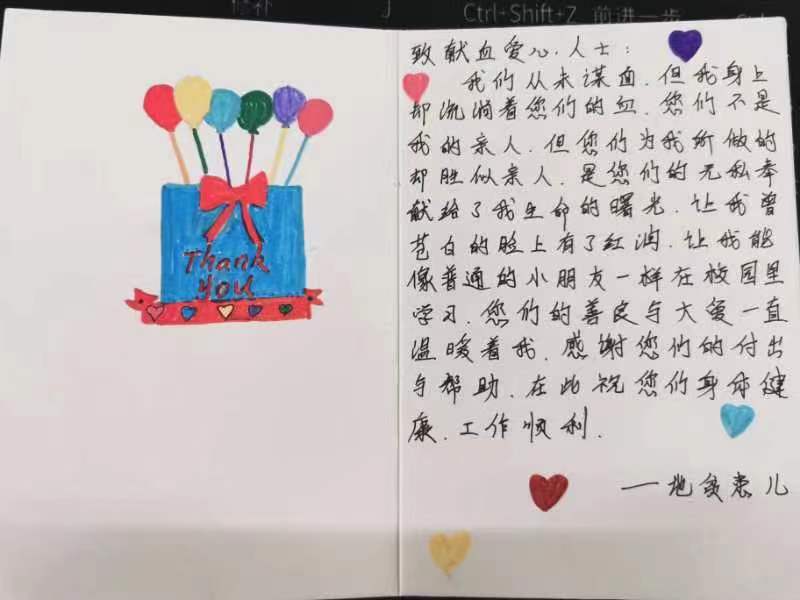 修补
Ctrl+Shift+Z 前进一步
Thank
you
致献血爱心人士:
我们从未谋面,但我身上
却流淌着您们的血,您们不是
我的亲人,但您们为我所做的
却胜似亲人,是您们的无私奉
献给了我生命的曙光,让我曾
苍白的脸上有了红润,让我能
像普通的小朋友一样在校园里
学习,您们的善良与大爱一直
温暖着我,感谢您们的付出
与帮助,在此祝您们身体健
康,工作顺利.
——地贫患儿